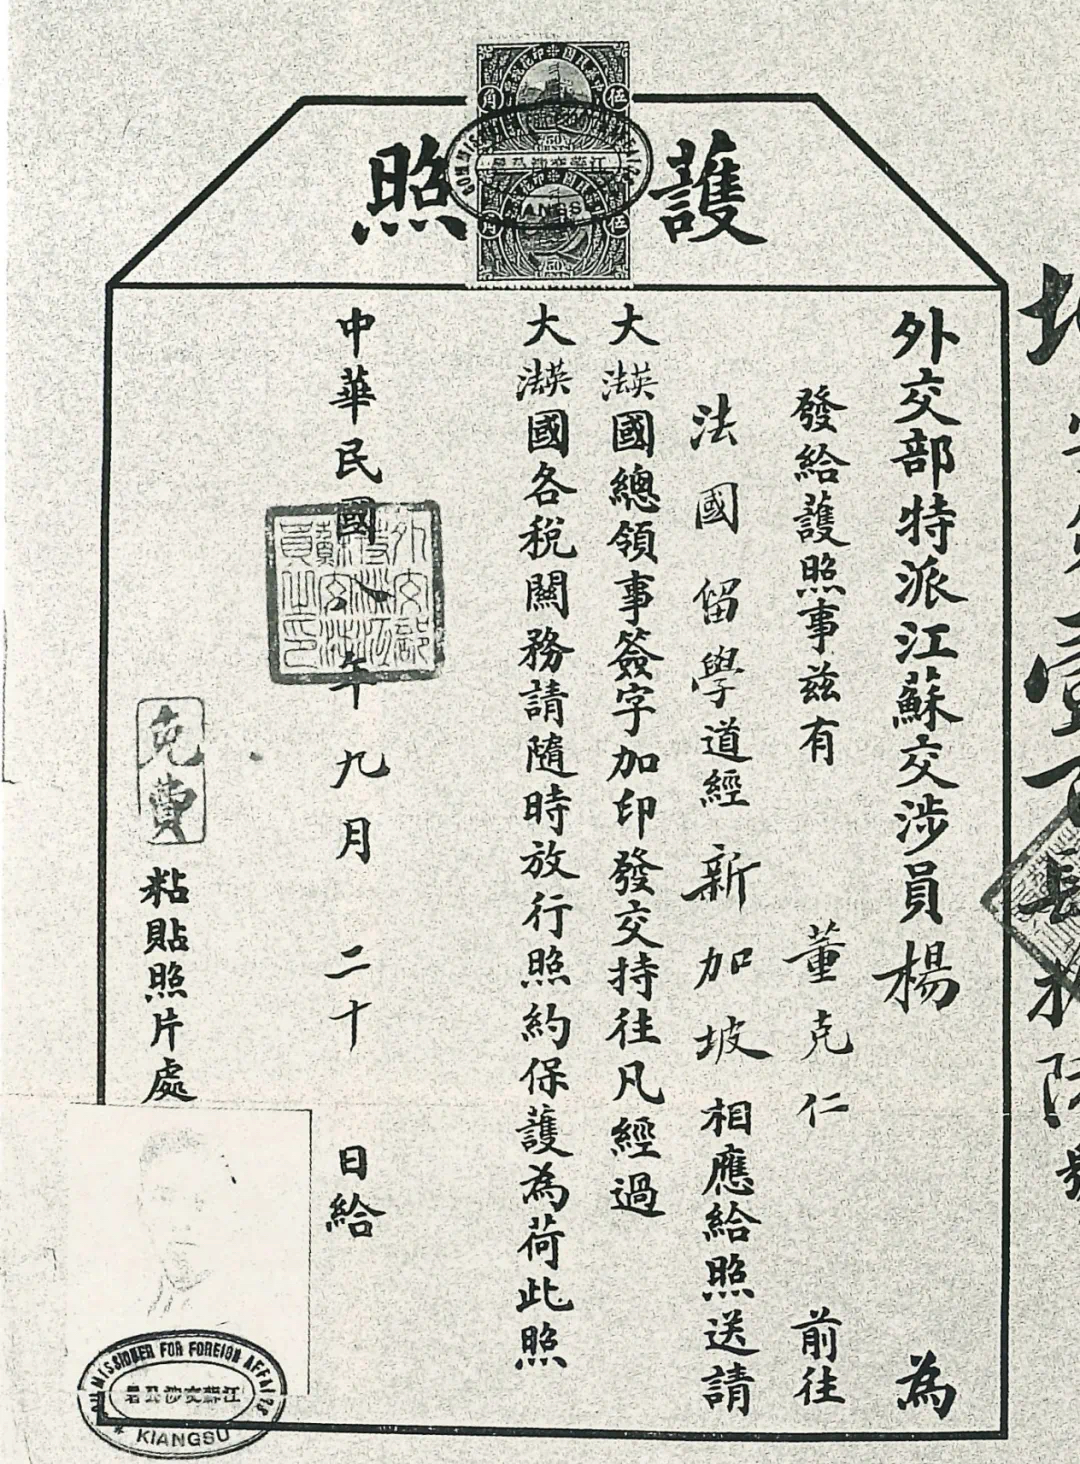 護照
外交部特派江蘇交涉員楊 為
發給護照事茲有 董克仁 前往
法國留學道經新加坡相應給照送請
大英法國總領事簽字加印發交持往凡經過
大英法國各稅關務請隨時放行照約保護為荷此照
中華民國八年九月二十日給
免費
粘貼照片處
外交部特派江蘇交涉員之印
伍角
50
伍角
50
江蘇交涉公署
COMMISSIONER FOR FOREIGN AFFAIRS
江蘇交涉公署
KIANGSU